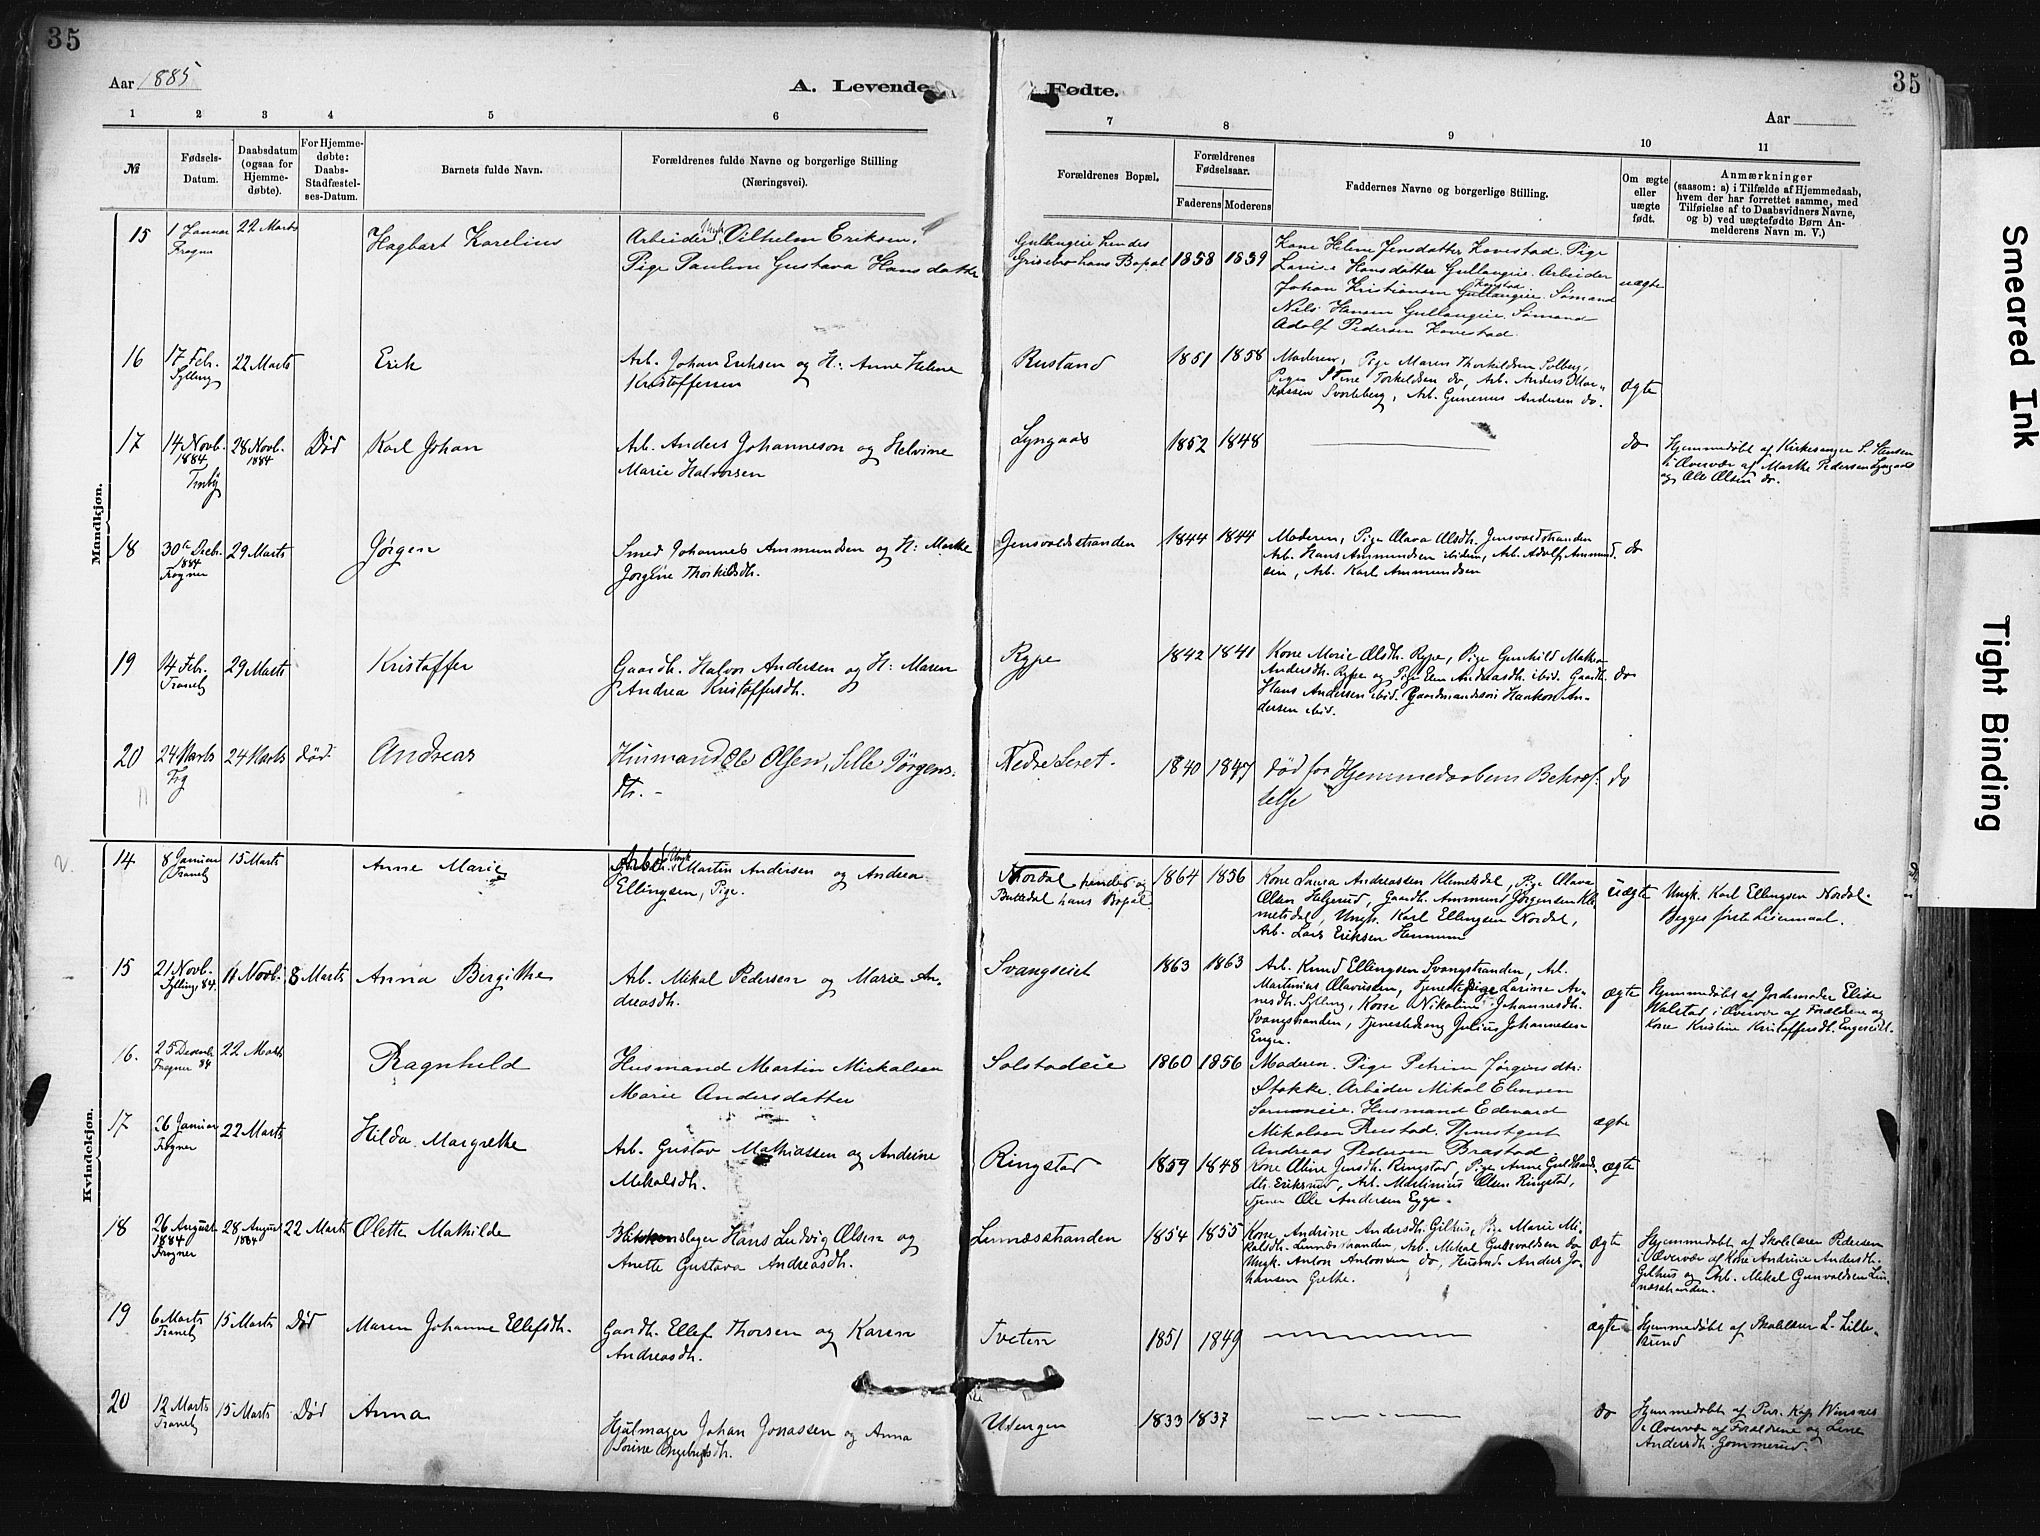 35
35
Aar 1885
A. Levende
Fødte.
Aar
1 2 3 4 5 6 7 8 9 10 11
№
Fødsels-
Datum.
Daabsdatum
(ogsaa for
Hjemme-
døbte).
For Hjemme-
døbte:
Daabs-
Stadfæstel-
ses-Datum.
Barnets fulde Navn.
Forældrenes fulde Navne og borgerlige Stilling
(Næringsvei).
Forældrenes Bopæl.
Forældrenes
Fødselsaar.
Faderens Moderens
Faddernes Navne og borgerlige Stilling.
Om ægte
eller
uægte
født.
Anmærkninger
(saasom: a) i Tilfælde af Hjemmedaab,
hvem der har forrettet samme, med
Tilføielse af to Daabsvidners Navne,
og b) ved uægtefødte Børn An-
melderens Navn m. V.)
Mandkjøn.
15
1 Januar
Frogner
22 Marts
Hagbart Karelius
Arbeider Ungk. Vilhelm Eriksen,
Pige Pauline Gustava Hansdatter
Gullaugeie hendes
Grisebro hans Bopæl
1858 1859
Kone Helene Jensdatter Hovestad. Pige
Lovise Hansdatter Gullaugeie. Arbeider
Johan Kristiansen Gullaugeie. Sømand
Nils Hansen Gullaugeie. Sømand
Adolf Pedersen Hovestad
uægte
16
17 Febr.
Sylling
22 Marts
Erik
Arb. Johan Eriksen og H: Anne Helene
Kristoffersen
Rustand
1851 1858
Moderen, Pige Maren Thorkildsen Solberg,
Pigen Stine Torkildsen do, Arb. Anders Mar-
kussen Svorteberg, Arb. Gunerius Andersen do.
ægte
17
14 Novb.
1884
Tranby
28 Novb.
1884
Død
Karl Johan
Arb. Anders Johanneson og Helvine
Marie Halvorsen
Lyngaas
1852 1848
do
Hjemmedøbt af Kirkesanger S. Hansen
i Overvær af Marthe Pedersen Lyngaas
og Ole Olsen do.
18
30te Decbr.
1884
Frogner
29 Marts
Jørgen
Smed Johannes Ammundsen og H: Marthe
Jorgine Thorkildsdh.
Jensvoldsstranden
1844 1844
Moderen, Pige Olava Olsdh. Jensvoldstranden
Arb. Hans Ammundsen ibidem, Arb. Adolf Ammund-
sen, Arb. Karl Ammundsen
do
19
14 Febr.
Tranby
29 Marts
Kristoffer
Gaardb. Halvor Andersen og H: Maren
Andrea Kristoffersdh.
Rype
1842 1841
Kone Marie Olsdh. Rype, Pige Gunhild Mathea
Andersdh. Rype og Pige Elen Andreasdh. ibid. Gaardb.
Hans Andersen ibid. Gaardmandssøn Haakon An-
dersen ibid.
do
20
24 Marts
Frg
24 Marts
død
Andreas
Husmand Ole Olsen, Sille Jørgens-
dtr. -
Nedre Leret.
1840 1847
død før Hjemmedaabens Bekræf-
telse
do
Kvindekjøn.
14
8 Januar
Tranby
15 Marts
Anne Marie
Arb. Ungk. Martin Andersen og Andrea
Ellingsen, Pige.
Nordal hendes og
Buttedal hans Bopæl
1864 1856
Kone Laura Andreassen Klemetsdal, Pige Olava
Olsen Helgerud, Gaardb. Ammund Jørgensen Kle-
metsdal, Ungk. Karl Ellingsen Nordal,
Arb. Lars Eriksen Hennum
uægte
Ungk. Karl Ellingsen Nordal.
Begges første Leiermaal.
15
21 Novb.
Sylling 84.
11 Novb.
8 Marts
Anna Birgitte
Arb. Mikal Pedersen og Marie An-
dreasdh.
Svangseiet
1863 1863
Arb. Knud Ellingsen Svangstranden, Arb.
Martinius Olavussen, Tjenestepige Larine Ar-
nesdh. Sylling, Kone Nikoline Johannesdh.
Svangstranden, Tjenestedreng Julius Johannesen
Enger.
ægte
Hjemmedøbt af Jordemoder Elise
Walstad i Overvær af Forældrene og
Kone Kristine Kristoffersdh. Engeseidt.
16.
25 Decemb.
Frogner 84
22 Marts
Ragnhild
Husmand Martin Mickalsen
Marie Andersdatter
Solstadeie
1860 1856
Moderen. Pige Petrine Jørginsdtr:
Stokke. Arbeider Mikal Elensen
Husmand Edevard
Mikalsen Rustad. Tjenestgut
Andreas Pedersen Brastad
ægte
17
26 Januar
Frogner
22 Marts
Hilda Margrethe
Arb. Gustav Mathiassen og Andrine
Mikalsdh.
Ringstad
1859 1848
Kone Oline Jensdh. Ringstad, Pige Anne Guldbrands-
dtr. Eriksrud, Arb. Martinius Olsen Ringstad,
Tjener Ole Andersen Egge.
ægte
18
26 August
1884
Frogner
28 August
1884
22 Marts
Olette Mathilde
Blikkenslager Hans Ludvig Olsen og
Anette Gustava Andreasdh.
Linnæsstranden
1854 1855
Kone Andrine Andersdh. Gilhus, Pige Marie Mi-
kalsdh. Linnæsstranden, Arb. Mikal Gulsvoldsen do
Ungk. Anton Antonsen do, Husmd. Anders Jo-
hansen Gilhs.
ægte
Hjemmedøbt af Skolelærer Pedersen
i Overvær af Kone Andrine Andersdh.
Gilhus og Arb. Mikal Gunvaldsen Lin-
næsstranden.
19
6 Marts
Tranby
15 Marts
Død
Maren Johanne Ellefsdh.
Gaardb. Ellef Thorsen og Karen
Andreasdh.
Tveten
1851 1849
ægte
Hjemmedøbt af Skolelærer L. Lille-
sund
20
12 Marts
Tranby
15 Marts
Død
Anna
Hjulmager Johan Jonassen og Anna
Sørine Engebretsdh.
Utengen
1833 1837
do
Hjemmedøbt af Pers. Kap. Winsnes
i Overvær af Forældrene og Line
Andersdh. Gommerud.
Smeared Ink
Tight Binding